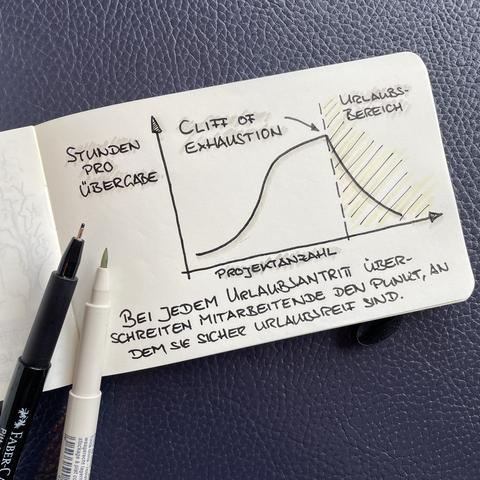 STUNDEN
PRO
ÜBERGABE
CLIFF OF
EXHAUSTION
URLAUBS-
BEREICH
PROJEKTANZAHL
BEI JEDEM URLAUBSANTRITT ÜBER-
SCHREITEN MITARBEITENDE DEN PUNKT, AN
DEM SIE SICHER URLAUBSREIF SIND.
FABER-CA